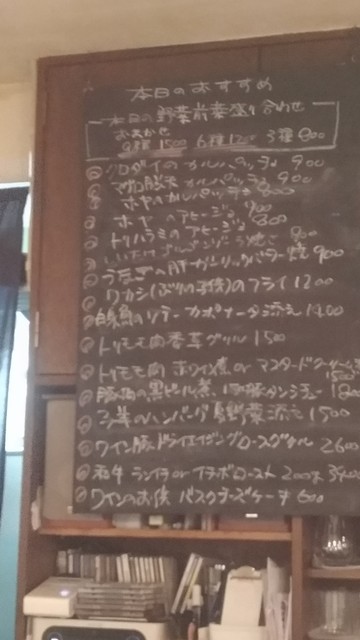 本日のおすすめ
本日の野菜前菜盛り合わせ
おまかせ
9種 1500 6種 1200 3種 800
クロダイのカルパッチョ 900
カルパッチョ 900
ホヤのカルパッチョ 800
ホヤのアヒージョ 900
トリハラミのアヒージョ 800
肝ガーリックバター焼 900
ワカシ(ぶりの子供)のフライ 1200
白身魚のソテー カポナータ添え 1400
トリモモ肉香草グリル 1500
トリモモ肉 赤ワイン煮 or マスタードクリーム
1500
豚肉の黒ビール煮 タンシチュー 1800
ハンバーグ 野菜添え 1500
ワイン豚ドライエイジングロースグリル 2600
和牛 ランイチ or イチボロースト 200g
ワインのお供 バスクチーズケーキ 600